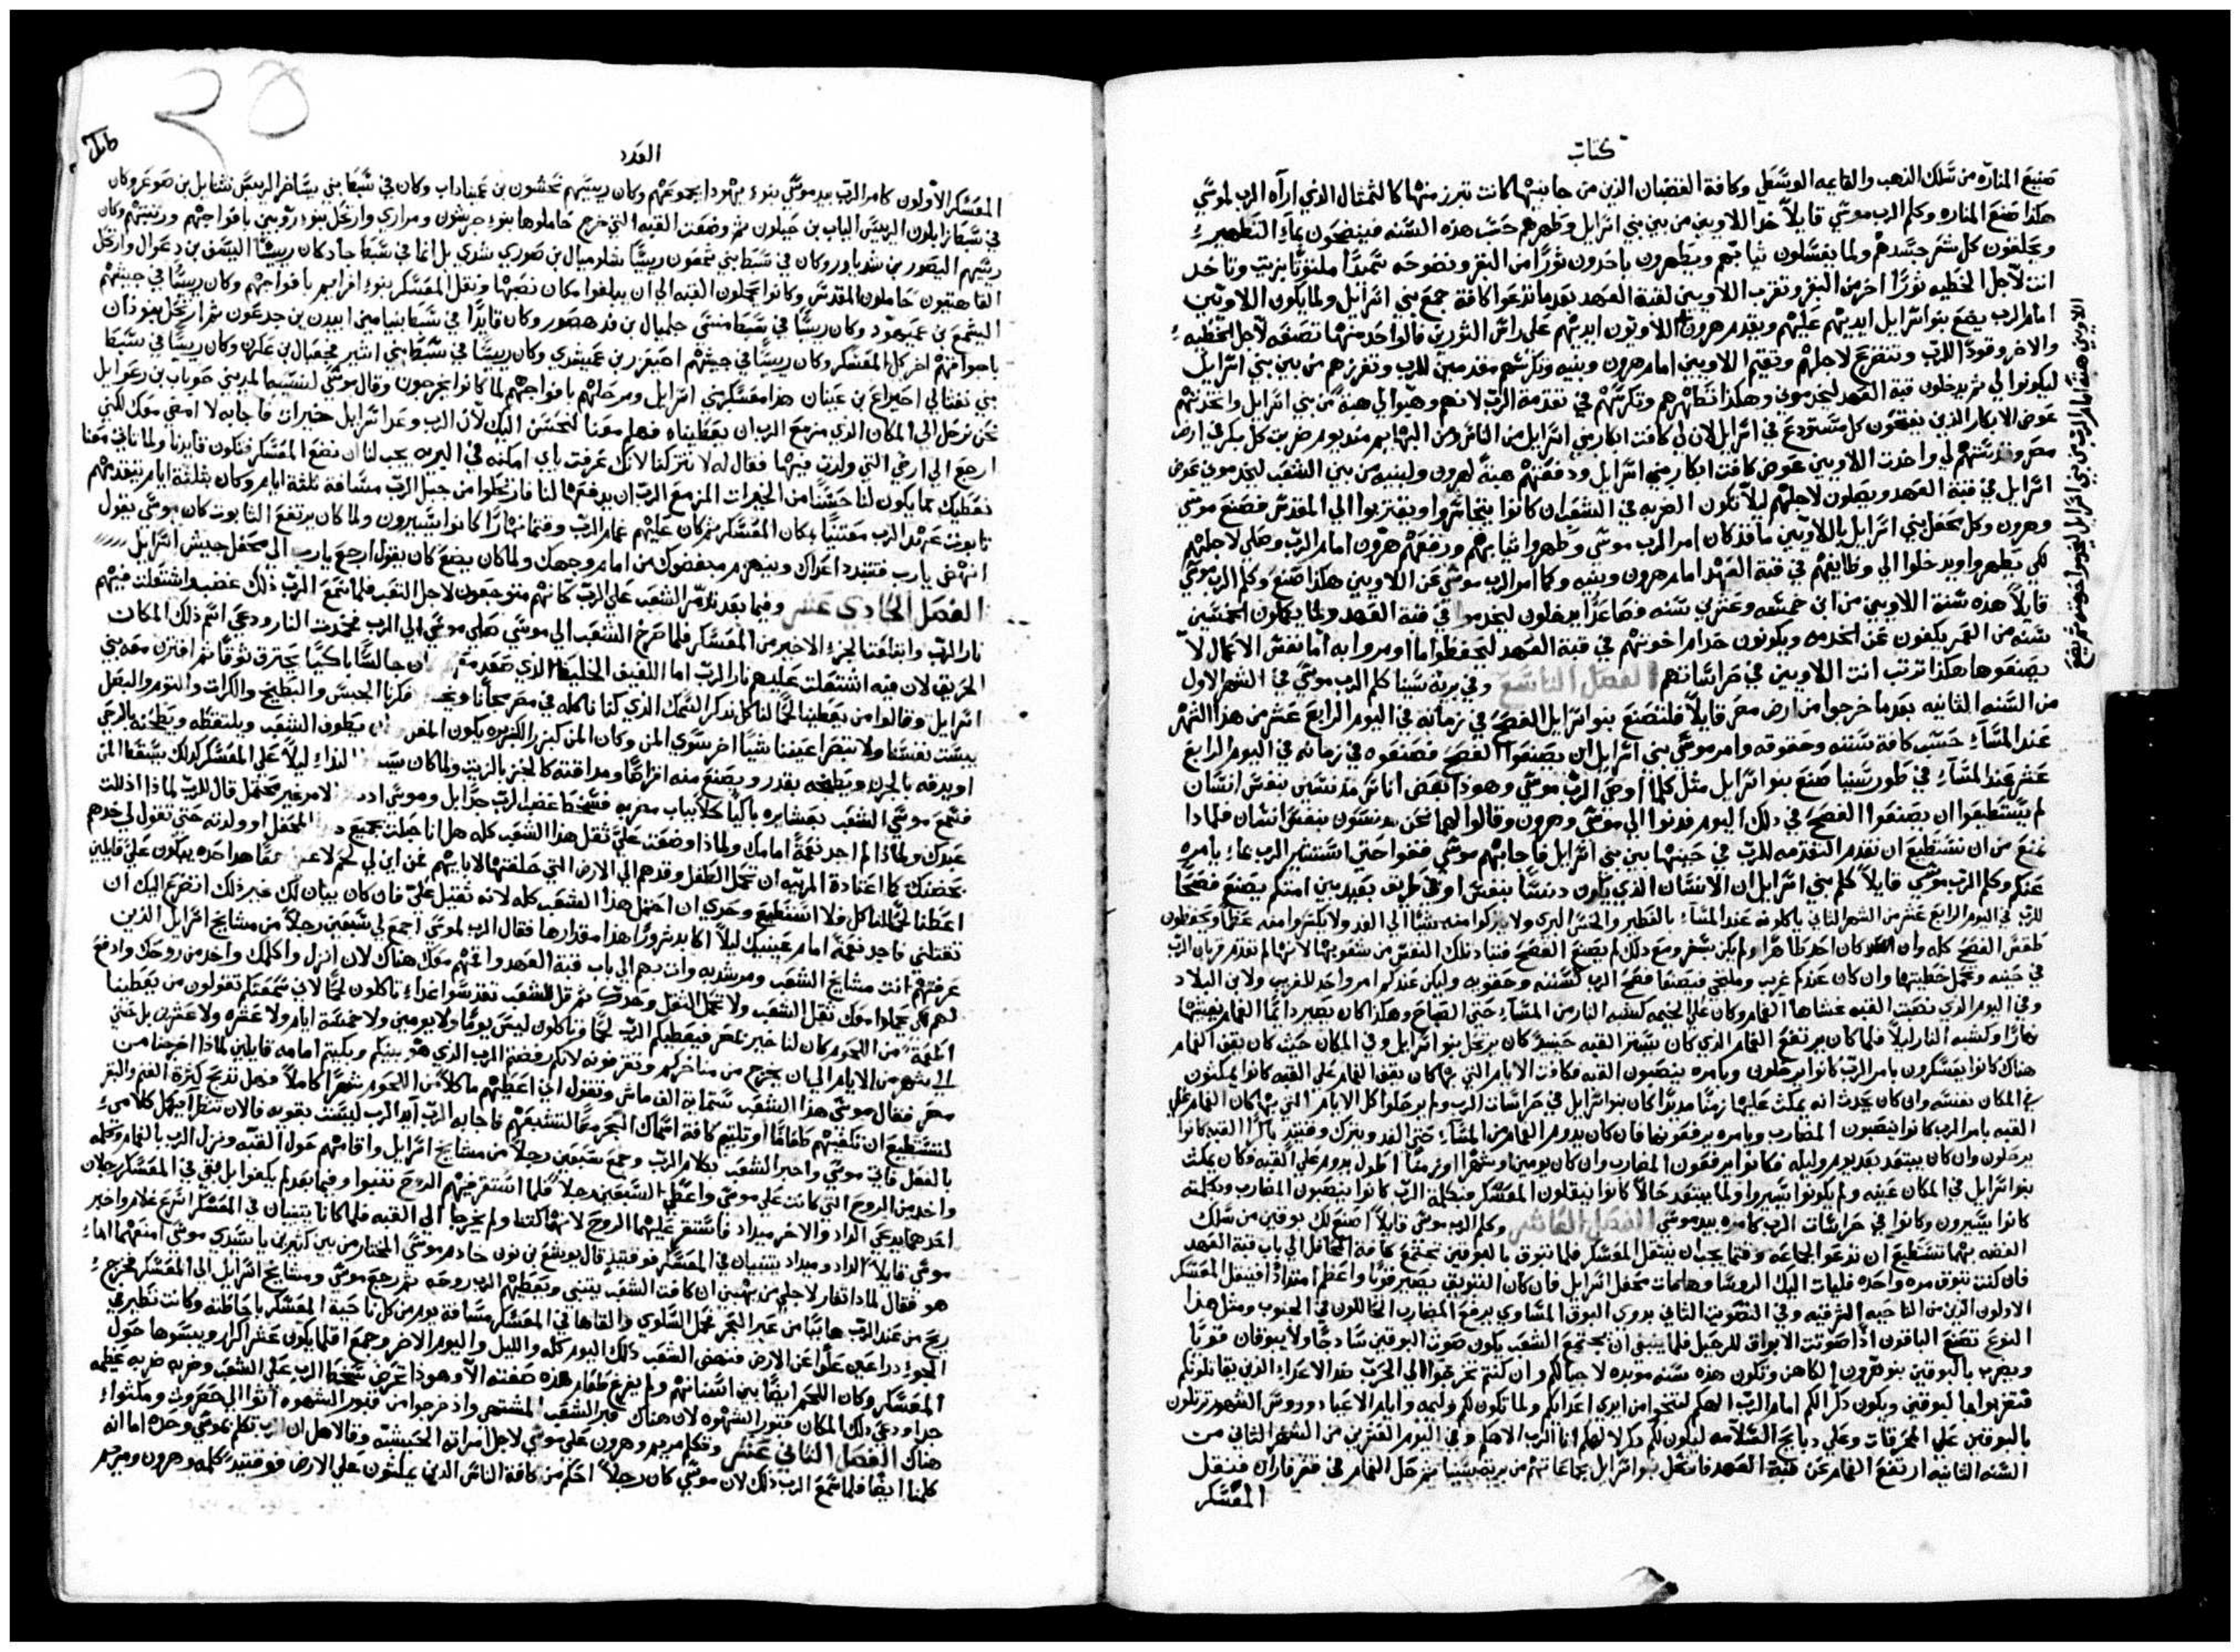 كتاب
صنيع المناره من سلك الذهب والقايمه الوسطي وكافة القضبان الذين من جانبيها كانت تبرز منها كالتمثال الذي اراه الرب لموسي
هكذا صنع المناره وكلم الرب موسي قايلاً خذ اللاويين من بين بني اسرايل وطهرهم حسب هذه السنه فينضحون بماء التطهير
ويحلقون كل شعر جسدهم ولما يغسلون ثيابهم ويطهرون ياخدون ثوراً من البقر ونضوحه سميداً ملتوتاً بزيت وتاخد
انت لاجل الخطيه ثوراً اخر من البقر وتقرب اللاويين لقبة العهد بعد ما تدعوا كافة جمع بني اسرايل ولما يكون اللاويين
امام الرب يضع بنو اسرايل ايديهم عليهم ويقدم هرون اللاويون ايديهم علي راس الثورين فالواحد منهما تصنعه لاجل الخطيه
والاخر وقود الرب وتتضرع لاجلهم وتقيم اللاويين امام هرون وبنيه وتكرسهم مقدمين للرب وتفرزهم من بين بني اسرايل
ليكونوا لي ثم يدخلون قبة العهد ليخدموني وهكذا تطهرهم وتكرسهم في تقدمة الرب لانهم وهبوا لي هبة من بني اسرايل واتخذتهم
عوض الابكار الذين يفتحون كل مستودع في اسرايل لان لي كافة ابكار بني اسرايل من الناس ومن البهايم منذ يوم ضربت كل بكر في ارض
مصر وقدستهم لي واخدت اللاويين عوض كافة ابكار بني اسرايل ودفعتهم هبة لهرون ولبنيه من بين الشعب ليخدموني عوض
اسرايل في قبة العهد ويصلون لاجلهم ليلا تكون الضربه في الشعب ان كانوا يتجاسروا ويقتربوا الي المقدس فصنع موسي
وهرون وكل محفل بني اسرايل باللاويين ما قد كان امر الرب موسي وطهروا ثيابهم ورفعهم هرون امام الرب وصلي لاجلهم
لكي يطهروا ويدخلوا الي وظايفهم في قبة العهد امام هرون وبنيه وكما امر الرب موسي عن اللاويين هكذا صنع وكلم الرب موسي
قايلاً هذه سنة اللاويين من ابن خمسه وعشرين سنه وصاعداً يدخلون ليخدموا في قبة العهد ولما يكملون الخمسين
سنه من العمر يكفون عن الخدمه ويكونون خدام اخوتهم في قبة العهد ليحفظوا ما اومروا به اما نفس الاعمال لا
يصنعوها هكذا ترتب انت اللاويين في حراساتهم الفصل التاسع وفي برية سينا كلم الرب موسي في الشهر الاول
من السنه الثانيه بعد ما خرجوا من ارض مصر قايلاً فلتصنع بنو اسرايل الفصح في زمانه في اليوم الرابع عشر من هذا الشهر
عند المساء حسب كافة سننه وحقوقه وامر موسي بني اسرايل ان يصنعوا الفصح فصنعوه في زمانه في اليوم الرابع
عشر عند المساء في طور سينا صنع بنو اسرايل مثل كلما اوحي الرب موسي وهوذا بعض اناس مدنسين بنفس انسان
لم يستطيعوا ان يصنعوا الفصح في ذلك اليوم فدنوا الي موسي وهرون وقالوا لهما نحن مدنسون بنفس انسان فلماذا
نمنع من ان نستطيع ان نقدم التقدمه للرب في حينها بين بني اسرايل فاجابهم موسي قفوا حتي استشير الرب بماذا يامره
عنكم وكلم الرب موسي قايلاً كلم بني اسرايل ان الانسان الذي يكون دنساً بنفس او في طريق بعيد بين امتكم يصنع فصحاً
للرب في اليوم الرابع عشر من الشهر الثاني ياكلونه عند المساء بالفطير والخس البري ولا يتركوا منه شيئاً الي الغد ولا يكسروا منه عظماً ويحفظون
طقس الفصح كله وان كان احد طاهراً ولم يكن بسفر ومع ذلك لم يصنع الفصح فتباد تلك النفس من شعوبها لانها لم تقدم قربان الرب
في حينه وتحمل خطيتها وان كان عندكم غريب وملتجي فيصنعا فصح الرب كسننه وحقوقه وليكن عندكم امر واحد للغريب ولابن البلاد
وفي اليوم الذي نصبت القبه غشاها الغمام وكان علي الخيمه كشبه النار من المساء حتي الصباح وهكذا كان يصير دايماً الغمام يغشيها
نهاراً وكشبه النار ليلاً فلما كان يرتفع الغمام الذي كان يستر القبه حينيذ كان يرتحل بنو اسرايل وفي المكان حيث كان يقف الغمام
هناك كانوا يعسكرون بامر الرب كانوا يرحلون وبامره ينصبون القبه فكافة الايام التي بها كان يقف الغمام علي القبه كانوا يمكثون
في المكان نفسه وان كان يحدث انه يمكث عليها زمناً مديداً كان بنو اسرايل في حراسات الرب ولم يرحلوا كل الايام التي بها كان الغمام علي
القبه بامر الرب كانوا ينصبون المضارب وبامره يرفعونها فان كان يدوم الغمام من المساء حتي الغد ويترك وقتيذ باكراً القبه كانوا
يرحلون وان كان يبتعد بعد يوم وليله فكانوا يرفعون المضارب وان كان يومين او شهراً او زمناً اطول يدوم علي القبه وكان يمكث
بنو اسرايل في المكان عينه ولم يكونوا يسيروا ولما يبتعد حالاً كانوا ينقلون المعسكر فبكلمة الرب كانوا ينصبون المضارب وبكلمته
كانوا يسيرون وكانوا في حراسات الرب كامره بيد موسي الفصل العاشر وكلم الرب موسي قايلاً اصنع لك بوقين من سلك
الفضه بهما تستطيع ان تدعو الجماعه وقتما يجب ان ينتقل المعسكر فلما تبوق بالبوقين تجتمع كافة المحافل الي باب قبة العهد
فان كنت تبوق مره واحده فليات اليك الروسا وهامات محفل اسرايل فان كان التبويق يصير قوياً واعظم امتداداً فينقل المعسكر
الاولون الذين من الناحيه الشرقيه وفي التصويت الثاني بدوي البوق المساوي يرفع المضارب الحاللون في الجنوب ومثل هذا
النوع تصنع الباقون اذا صوتت الابواق للرحيل فلما ينبغي ان يجتمع الشعب يكون صوت البوقين ساذجاً ولا يبوقان قوياً
ويضرب بالبوقين بنو هرون الكاهن وتكون هذه سنه موبده لاجيالكم وان كنتم تخرجوا الي الحرب ضد الاعداء الذين يقاتلونكم
فتضربوا بالبوقين ويكون ذكراً لكم امام الرب الهكم لتنجوا من ايدي اعدايكم ولما تكون لكم وليمه وايام الاعياد وروس الشهور ترتلون
بالبوقين علي المحرقات وعلي دبايح السلامه ليكون لكم ذكراً لالهكم انا الرب الاهكم وفي اليوم العشرين من الشهر الثاني من
السنه الثانيه ارتفع الغمام عن قبة العهد فارتحل بنو اسرايل بجماعاتهم من برية سينا ثم رحل الغمام في قفر فاران فنقل
المعسكر
العدد
المعسكر الاولون كامر الرب بيد موسي بنوء يهودا بجموعهم وكان رييسهم نحشون بن عميناداب وكان في سبط بني يساخر الرييس نثنايل بن صوعر وكان
في سبط زابلون الرييس الياب بن حيلون ثم وضعت القبه التي خرج حاملوها بنوء جرشون ومراري وارتحل بنوء روبين بافواجهم ورتبتهم وكان
رييسهم اليصور بن شدياور وكان في سبط بني شمعون رييساً شلوميال بن صوري شدي بل انما في سبط جاد كان رييساً اليسف بن دعوال وارتحل
القاهتيون حاملون المقدس وكانوا يحملون القبه الي ان يبلغوا مكان نصبها ونقل المعسكر بنوء افرايم بافواجهم وكان رييساً في جيشهم
اليشمع بن عميهود وكان رييساً في سبط منسي جمليال بن فدهصور وكان قايداً في سبط بنيامين ابيدن بن جدعون ثم ارتحل بنو دان
باجواقهم اخر كل المعسكر وكان رييساً في جيشهم احيعزر بن عميشدي وكان رييساً في سبط بني اشير فجعيال بن عكرن وكان رييساً في سبط
بني نفتالي احيراع بن عينان هذا معسكر بني اسرايل ومرحلتهم بافواجهم لما كانوا يخرجون وقال موسي لنسيبه المديني حوباب بن رعوايل
نحن نرحل الي المكان الذي مزمع الرب ان يعطيناه فهلم معنا لنحسن اليك لان الرب وعد اسرايل خيرات فاجابه لا امضي معك لكني
ارجع الي ارضي التي ولدت فيها فقال له لا تتركنا لانك عرفت باي امكنه في البريه يجب لنا ان نضع المعسكر فتكون قايدنا ولما تاتي معنا
نعطيك مما يكون لنا حسناً من الخيرات المزمع الرب ان يدفعها لنا فارتحلوا من جبل الرب مسافة ثلثة ايام وكان بثلثة ايام يتقدمهم
تابوت عهد الرب معتنياً بمكان المعسكر ثم كان عليهم غمام الرب وقتما نهاراً كانوا يسيرون ولما كان يرتفع التابوت كان موسي يقول
انهض يارب فتتبدد اعداك وينهزم مبغضوك من امام وجهك ولما كان يضع كان يقول ارجع يارب الي محفل جيش اسرايل
الفصل الحادي عشر وفيما بعد تذمر الشعب علي الرب كانهم متوجعون لاجل التعب فلما سمع الرب ذلك غضب واشتعلت فيهم
نار الرب وابتلعت الجزء الاخير من المعسكر فلما صرخ الشعب الي موسي صلي موسي الي الرب فخمدت النار ودعي اسم ذلك المكان
الحريق لان فيه اشتعلت عليهم نار الرب اما اللفيف الخليط الذي صعد جالساً باكياً يحترق توقاً ثم اقترن معه بني
اسرايل وقالوا من يعطينا لحماً لناكل نذكر السمك الذي كنا ناكله في مصر مجاناً فكرنا الخبس والبطيخ والكرات والتوم والبصل
يبست نفسنا ولا تنضر اعيننا شيئاً اخر سوي المن وكان المن كبزر الكزبره بكون يطوف الشعب ويلتقطه ويطحنه بالرحي
او يدقه بالجرن ويطبخه بقدر ويصنع منه اقراصاً ومذاقته كالخبز بالزيت ولما كان النداء ليلاً علي المعسكر كذلك يسقط المن
فسمع موسي الشعب بعشايره باكياً كلاً بباب مضربه فسخط غضب الرب جداً بل وموسي الامر غير محتمل قال للرب لماذا اذللت
عبدك ولماذا لم اجد نعمةً امامك ولماذا وضعت علي ثقل هذا الشعب كله هل انا حبلت بجميع المحفل او ولدته حتي تقول لي خدهم
بحضنك كما اعتادة المربيه ان تحمل الطفل وقدهم الي الارض التي حلفتها لابايهم من اين لي لحم يبكون علي قايلين
اعطنا لحماً لناكل فلا استطيع وحدي ان احتمل هذا الشعب كله لانه ثقيل علي فان كان يبان لك غير ذلك اتضرع اليك ان
تقتلني فاجد نعمة امام عينيك ليلاً اكابد شروراً هذا مقدارها فقال الرب لموسي اجمع لي سبعين رجلاً من مشايخ اسرايل الذين
عرفتهم انت مشايخ الشعب ومرشديه وات بهم الي باب قبة العهد واقمهم معك هناك لان انزل واكلمك واخد من روحك وادفع
لهم لكي يحملوا معك ثقل الشعب ولا تحمل الثقل وحدك ثم قل للشعب تقدسوا غداً تاكلون لحماً لاني سمعتكم تقولون من يعطينا
اطعمة من اللحم كان لنا خير بمصر فيعطيكم الرب لحماً فتاكلون ليس يوماً ولا يومين ولا خمسة ايام ولا عشره ولا عشرين بل حتي
الي شهر من الايام الي ان يخرج من مناخركم وتقرفونه لانكم رفضتم الرب الذي هو بينكم وبكيتم امامه قايلين لماذا اخرجنا من
مصر فقال موسي هذا الشعب ستماية الف ماش وتقول اني اعطيهم ماكلاً من اللحم شهراً كاملاً فهل تذبح كثرة الغنم والبقر
لتستطيع ان تكفيهم طعاماً او تلتيم كافة اسماك البحر معاً لتشبعهم فاجابه الرب ايد الرب ليست بقويه فالان تنظر اسيكمل كلامي
بالفعل فاتي موسي واخبر الشعب بكلام الرب وجمع سبعين رجلاً من مشايخ اسرايل واقامهم حول القبه ونزل الرب بالغمام وكلمه
واخد من الروح التي كانت علي موسي واعطي السبعين رجلاً فلما استقر فيهم الروح تنبوا وفيما بعد لم يكفوا بل بقي في المعسكر رجلان
احدهما يدعي الداد والاخر ميداد فاستقر عليهما الروح لانهما كتبا ولم يخرجا الي القبه فلما كانا يتنبيان في المعسكر اسرع غلام واخبر
موسي قايلاً الداد وميداد يتنبيان في المعسكر فوقتيذ قال يوشع بن نون خادم موسي المختار من بين كثيرين يا سيدي موسي امنعهما اما
هو فقال لماذا تغار لاجلي من يهبني ان كافة الشعب يتنبي ويعطيهم الرب روحه ثم رجع موسي ومشايخ اسرايل الي المعسكر فخرج
ريح من عند الرب هاببا من عبر البحر فحمل السلوي والقاها في المعسكر مسافة يوم من كل ناحية المعسكر باحاطته وكانت تطير في
الجو دراعين علواً عن الارض فنهض الشعب ذلك اليوم كله والليل واليوم الاخر وجمع اقلما يكون عشر اكرار ويبسوها حول
المعسكر وكان اللحم ايضاً بين اسنانهم ولم يفرغ طعام هذه صفته الا وهوذا تحرض سخط الرب علي الشعب وضربه ضربه عظيمه
جدا ودعي ذلك المكان قبور الشهوه لان هناك قبر الشعب المشتهي واذ خرجوا من قبور الشهوه اتوا الي حضروت ومكثوا
هناك الفصل الثاني عشر وتكلم مريم وهرون علي موسي لاجل امراته الحبشيه وقالا هل ان الرب تكلم بموسي وحده اما انه
كلمنا ايضاً فلما سمع الرب ذلك لان موسي كان رجلاً احكم من كافة الناس الذين يمكثون علي الارض فوقتيذ كلمه وهرون ومريم